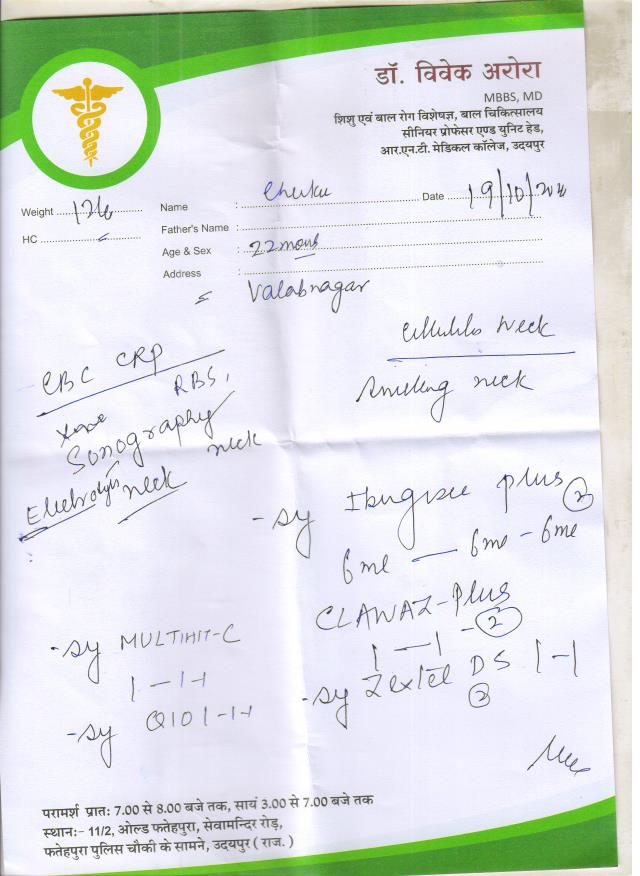 डॉ. विवेक अरोरा
MBBS, MD
शिशु एवं बाल रोग विशेषज्ञ, बाल चिकित्सालय
सीनियर प्रोफेसर एण्ड यूनिट हेड,
आर.एन.टी. मेडिकल कॉलेज, उदयपुर
Weight
Name : Chuku Date 19/10/
HC
Father's Name :
Age & Sex : 22
Address : Valabnagar
Cellulitis neck
CBC CRP
RBS,
neck
Sonography
neck
Electrolytes neck
- sy plus
6ml — 6ml - 6ml
CLAWAZ-Plus
1 — 1 - 2
- sy MULTIHIT-C
1 - 1 - 1
- sy DS 1 - 1
- sy
परामर्श प्रातः 7.00 से 8.00 बजे तक, सायं 3.00 से 7.00 बजे तक
स्थान:- 11/2, ओल्ड फतेहपुरा, सेवामन्दिर रोड़,
फतेहपुरा पुलिस चौकी के सामने, उदयपुर ( राज. )